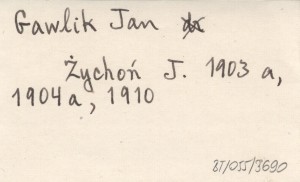 Gawlik Jan
Żychoń J. 1903 a,
1904a, 1910
BT/OII/3690